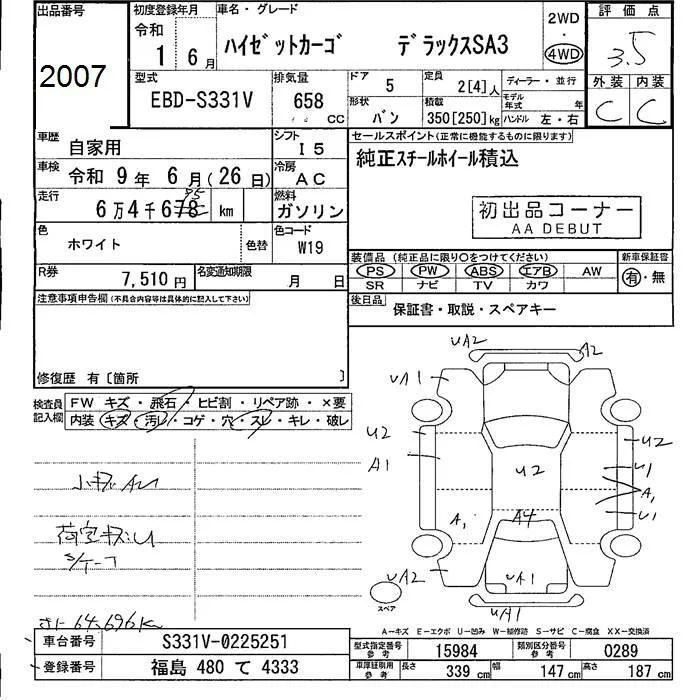 出品番号 2007
初度登録年月 令和 1 6月
車名・グレード ハイゼットカーゴ デラックスSA3
2WD ・ 4WD
評価点 3.5
外装 内装
C C
型式 EBD-S331V
排気量 658 CC
ドア 5
定員 2[4]人
ディーラー・並行
形状 バン
積載 350[250]kg
モデル年式 年
ハンドル 左・右
車歴 自家用
シフト I5
車検 令和 9年 6月(26日)
冷房 AC
走行 6万4千678 km
95
燃料 ガソリン
色 ホワイト 色替
色コード W19
R券 7,510円
名変通知期限 月 日
セールスポイント(正常に機能するものに限ります)
純正スチールホイール積込
初出品コーナー
AA DEBUT
装備品(純正品に限り○をつけてください)
PS PW ABS エアB AW
SR ナビ TV カワ
新車保証書
有・無
後日品 保証書・取説・スペアキー
注意事項申告欄(不具合内容等は具体的に記入して下さい)
修復歴 有〔箇所 〕
検査員記入欄
FW キズ・飛石・ヒビ割・リペア跡・×要
内装 キズ・汚レ・コゲ・穴・スレ・キレ・破レ
小キズAU
荷室キズU
S/ケース
メーター 64,696K
UA2 A2
UA1
U2 A1
U2
U2
U1
A1
U1
A1 A4
UA2 UA1
UA1
スペア
A―キズ E―エクボ U―凹み W―補修跡 S―サビ C―腐食 XX―交換済
車台番号 S331V-0225251
登録番号 福島 480 て 4333
型式指定番号 参考 15984
類別区分番号 参考 0289
車庫証明用 参考 長さ 339 cm 幅 147 cm 高さ 187 cm